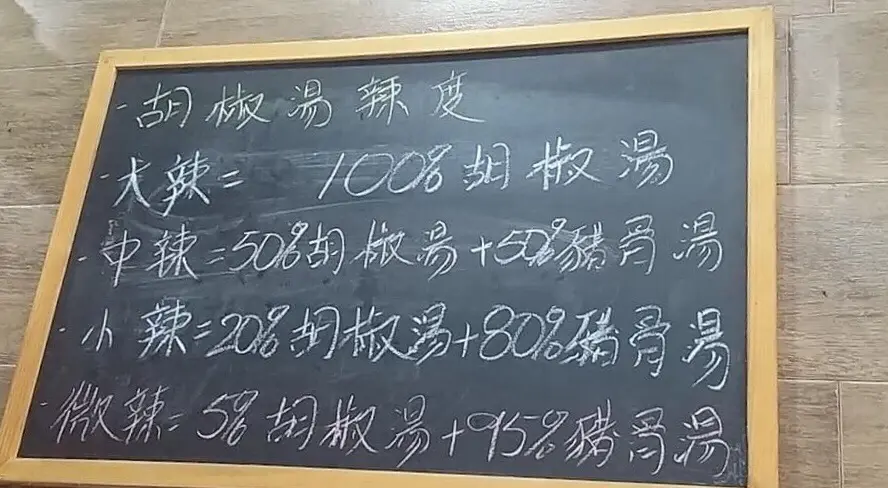 -胡椒湯辣度
-大辣= 100%胡椒湯
-中辣=50%胡椒湯+50%豬骨湯
-小辣=20%胡椒湯+80%豬骨湯
-微辣=5%胡椒湯+95%豬骨湯